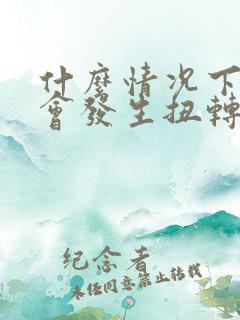 什麼情况下
會發生扭轉
纪念者
未经同意禁止转载